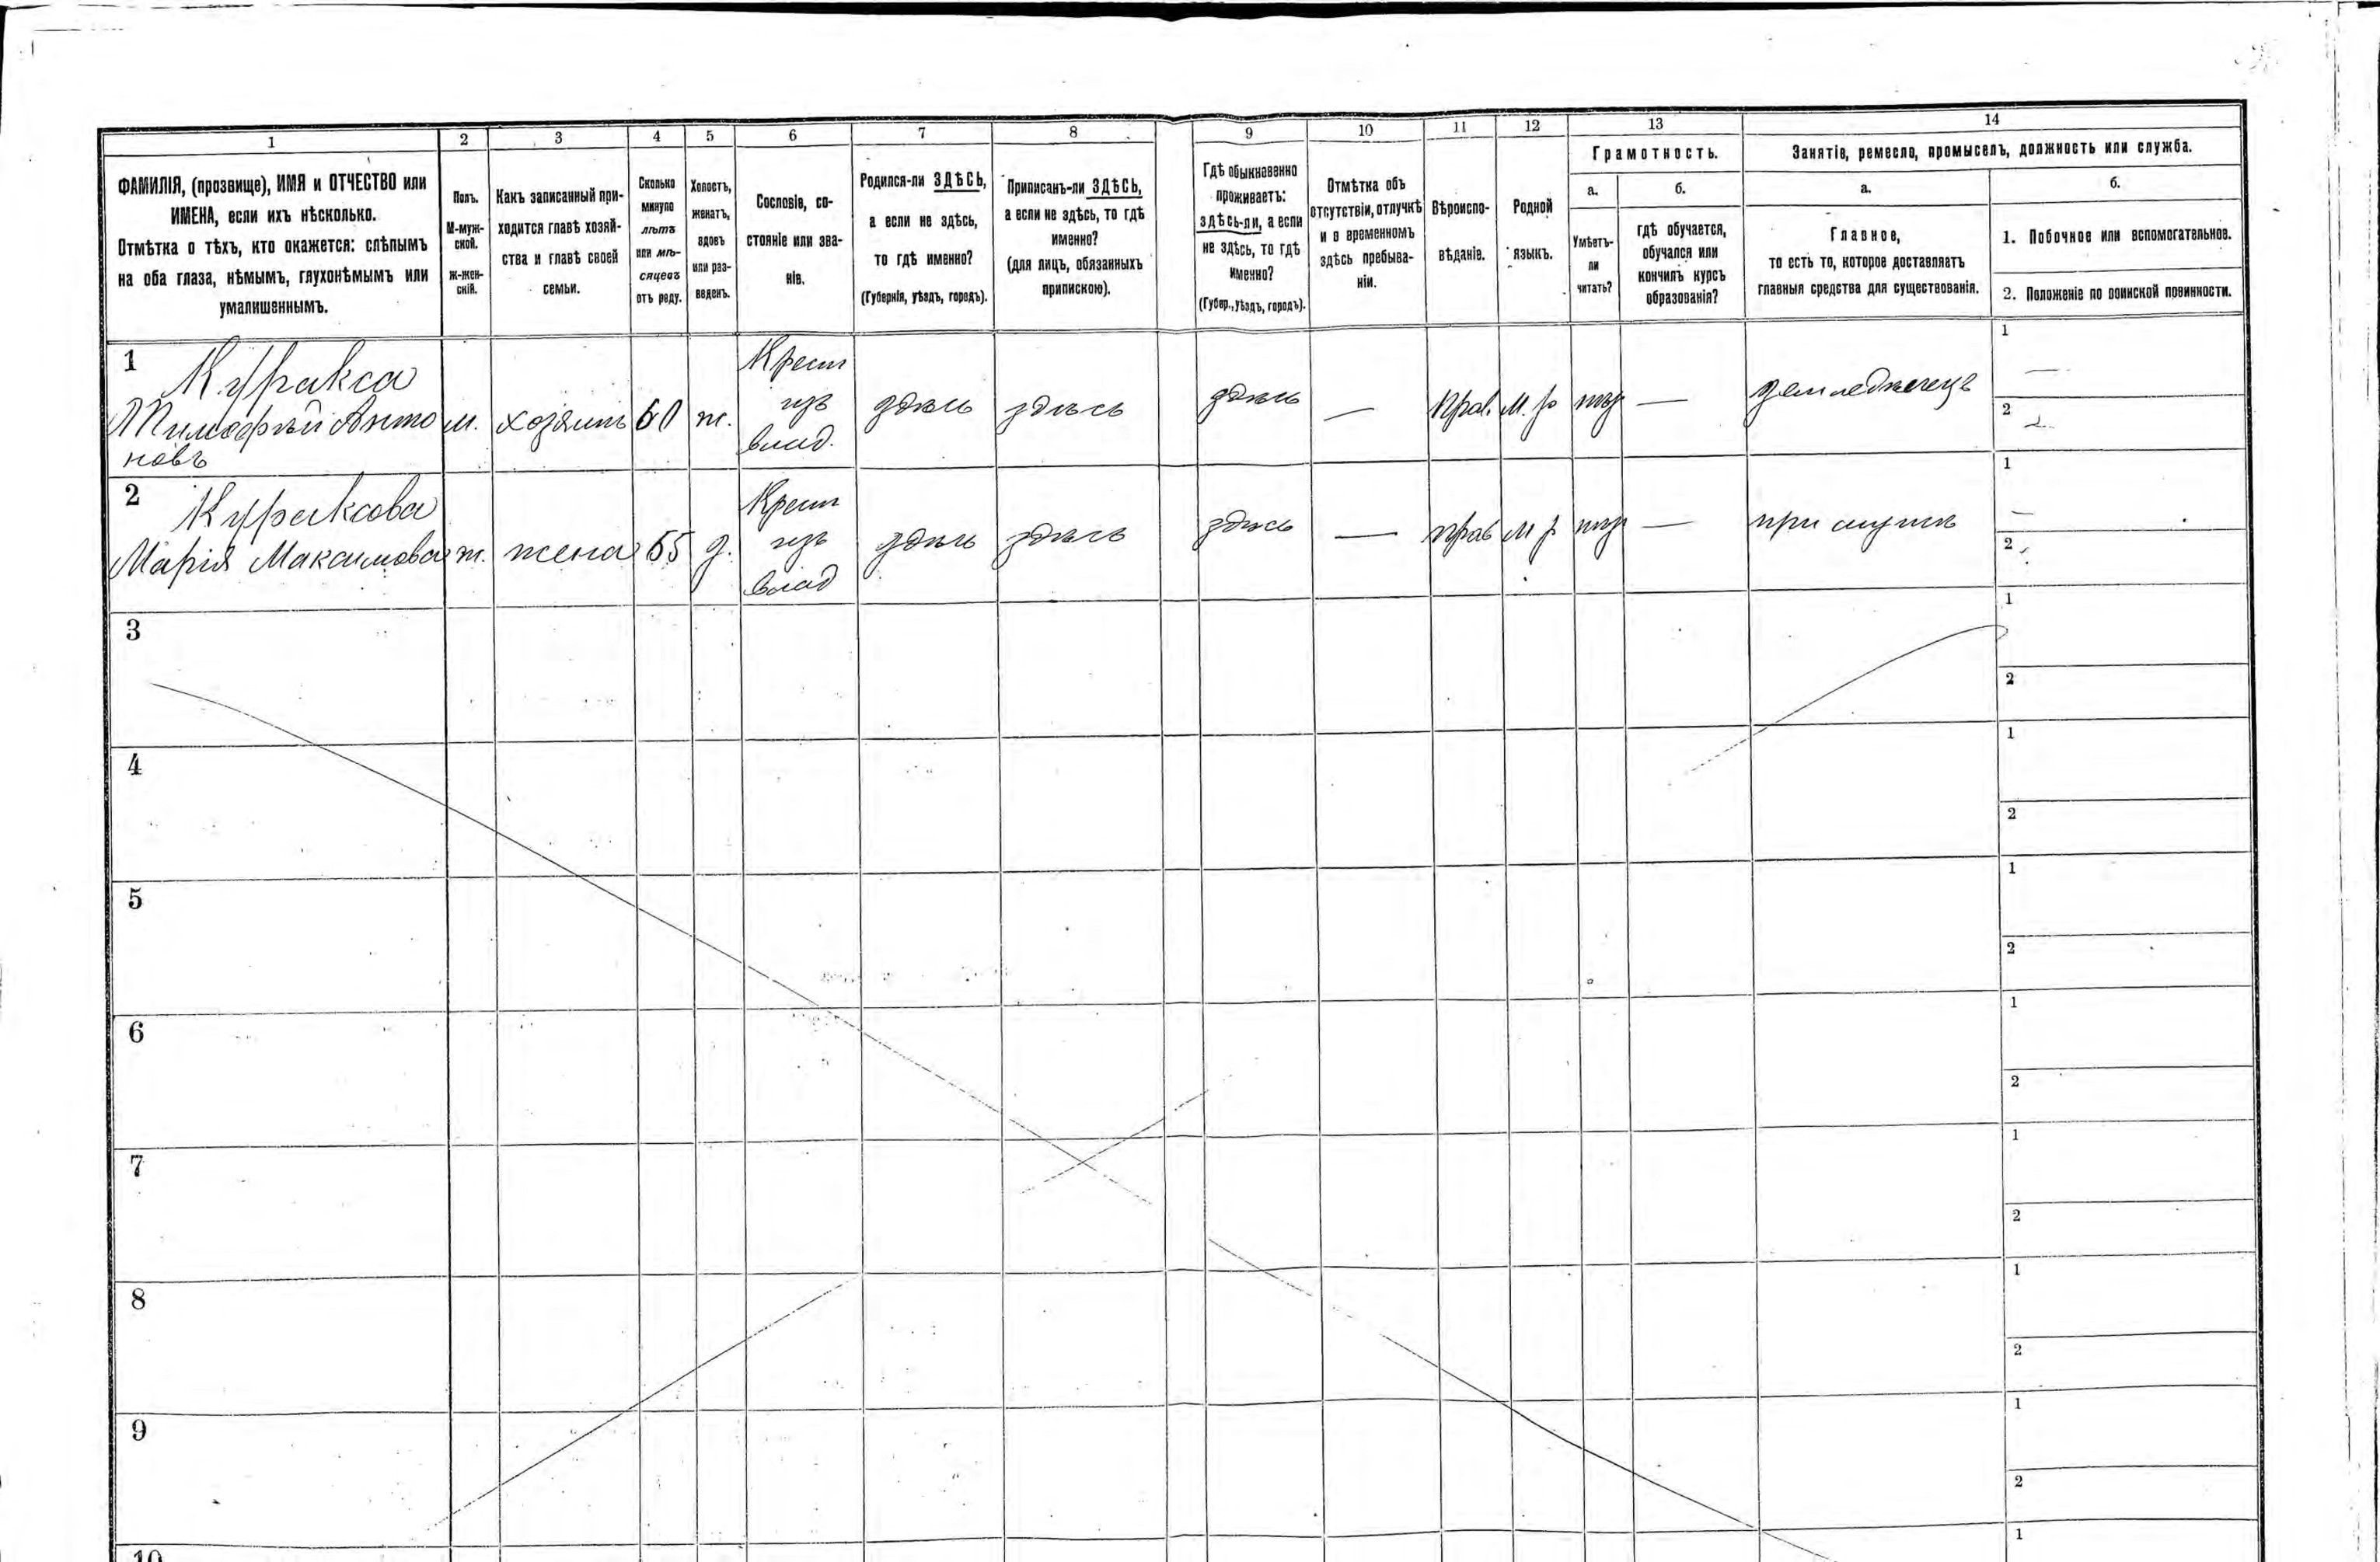 1 2 3 4 5 6 7 8 9 10 11 12 13 14
ФАМИЛІЯ, (прозвище), ИМЯ и ОТЧЕСТВО или
ИМЕНА, если ихъ нѣсколько.
Отмѣтка о тѣхъ, кто окажется: слѣпымъ
на оба глаза, нѣмымъ, глухонѣмымъ или
умалишеннымъ.
Полъ.
М-муж-
ской.
ж-жен-
скій.
Какъ записанный при-
ходится главѣ хозяй-
ства и главѣ своей
семьи.
Сколько
минуло
лѣтъ
или мѣ-
сяцевъ
отъ роду.
Холостъ,
женатъ,
вдовъ
или раз-
веденъ.
Сословіе, со-
стояніе или зва-
ніе.
Родился-ли ЗДѢСЬ,
а если не здѣсь,
то гдѣ именно?
(Губернія, уѣздъ, городъ).
Приписанъ-ли ЗДѢСЬ,
а если не здѣсь, то гдѣ
именно?
(для лицъ, обязанныхъ
припискою).
Гдѣ обыкновенно
проживаетъ:
здѣсь-ли, а если
не здѣсь, то гдѣ
именно?
(Губер., уѣздъ, городъ).
Отмѣтка объ
отсутствіи, отлучкѣ
и о временномъ
здѣсь пребыва-
ніи.
Вѣроиспо-
вѣданіе.
Родной
языкъ.
Грамотность.
а.
Умѣетъ-
ли
читать?
б.
гдѣ обучается,
обучался или
кончилъ курсъ
образованія?
Занятіе, ремесло, промыселъ, должность или служба.
а.
Главное,
то есть то, которое доставляетъ
главныя средства для существованія.
б.
1. Побочное или вспомогательное.
2. Положеніе по воинской повинности.
1
Куракса
Тимофѣй Анто
новъ
м.
хозяинъ
60
ж.
Крест
изъ
влад.
здѣсь
здѣсь
здѣсь
—
прав.
М. р
нѣт
—
земледѣлецъ
1
—
2
2
Кураксова
Марія Максимова
ж.
жена
55
з.
Крест
изъ
влад
здѣсь
здѣсь
здѣсь
—
прав
М р
нѣт
—
при мужѣ
1
—
2
3
1
2
4
1
2
5
1
2
6
1
2
7
1
2
8
1
2
9
1
2
10
1